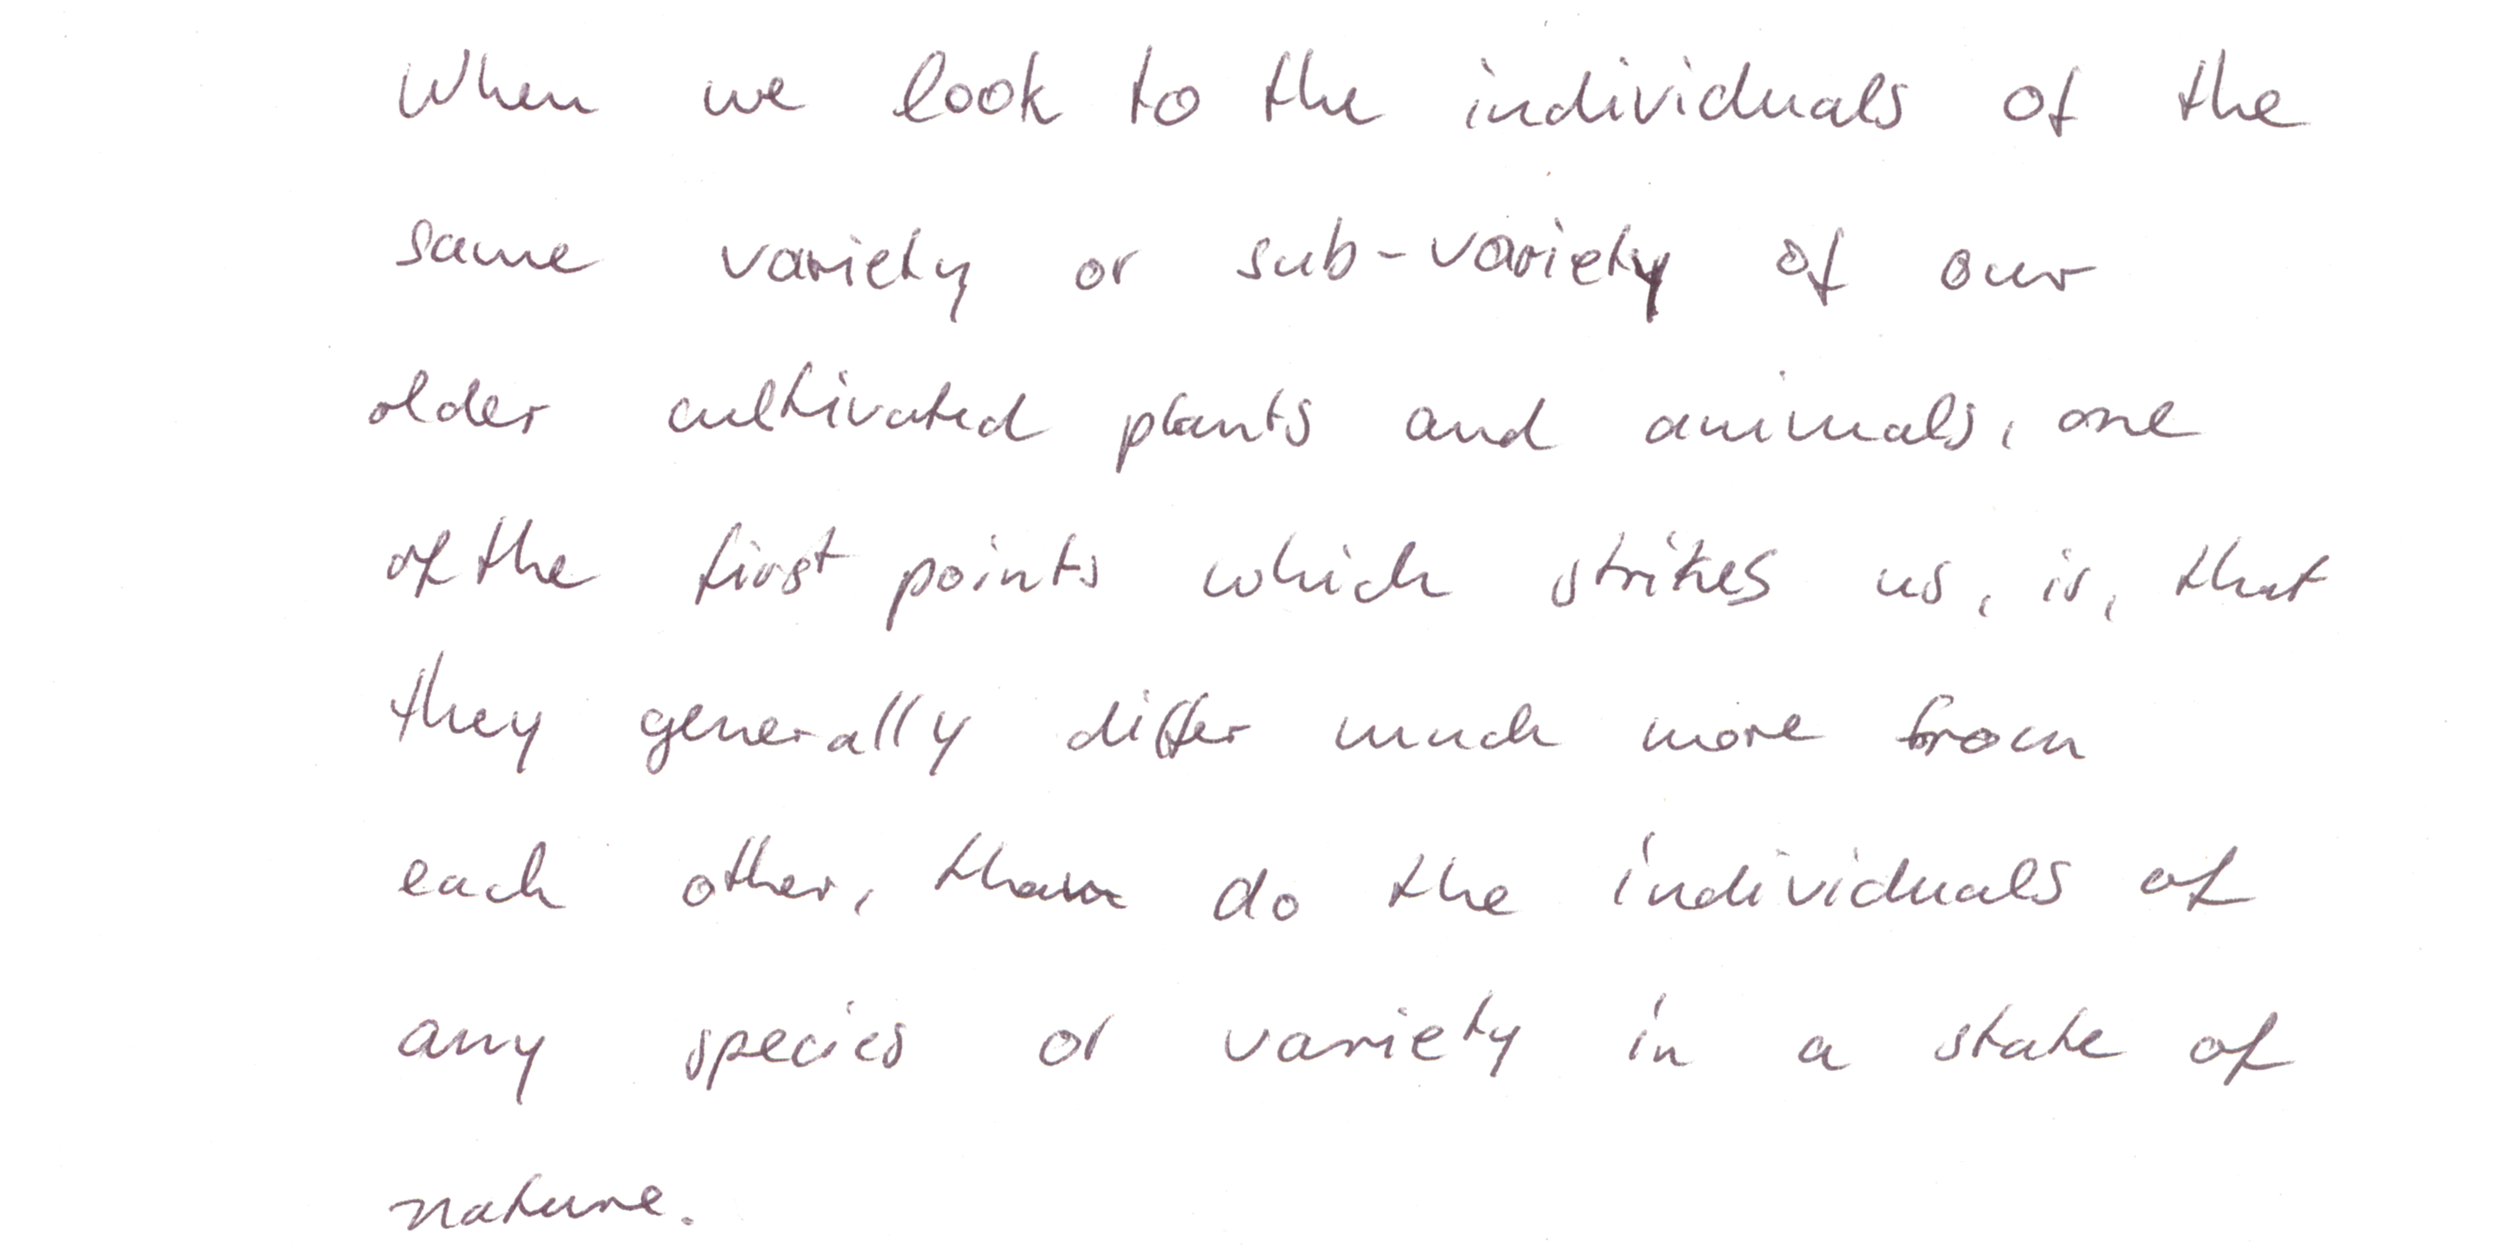 When we look to the individuals of the
same variety or sub-variety of our
older cultivated plants and animals, one
of the first points which strikes us, is, that
they generally differ much more from
each other, than do the individuals of
any species or variety in a state of
nature.